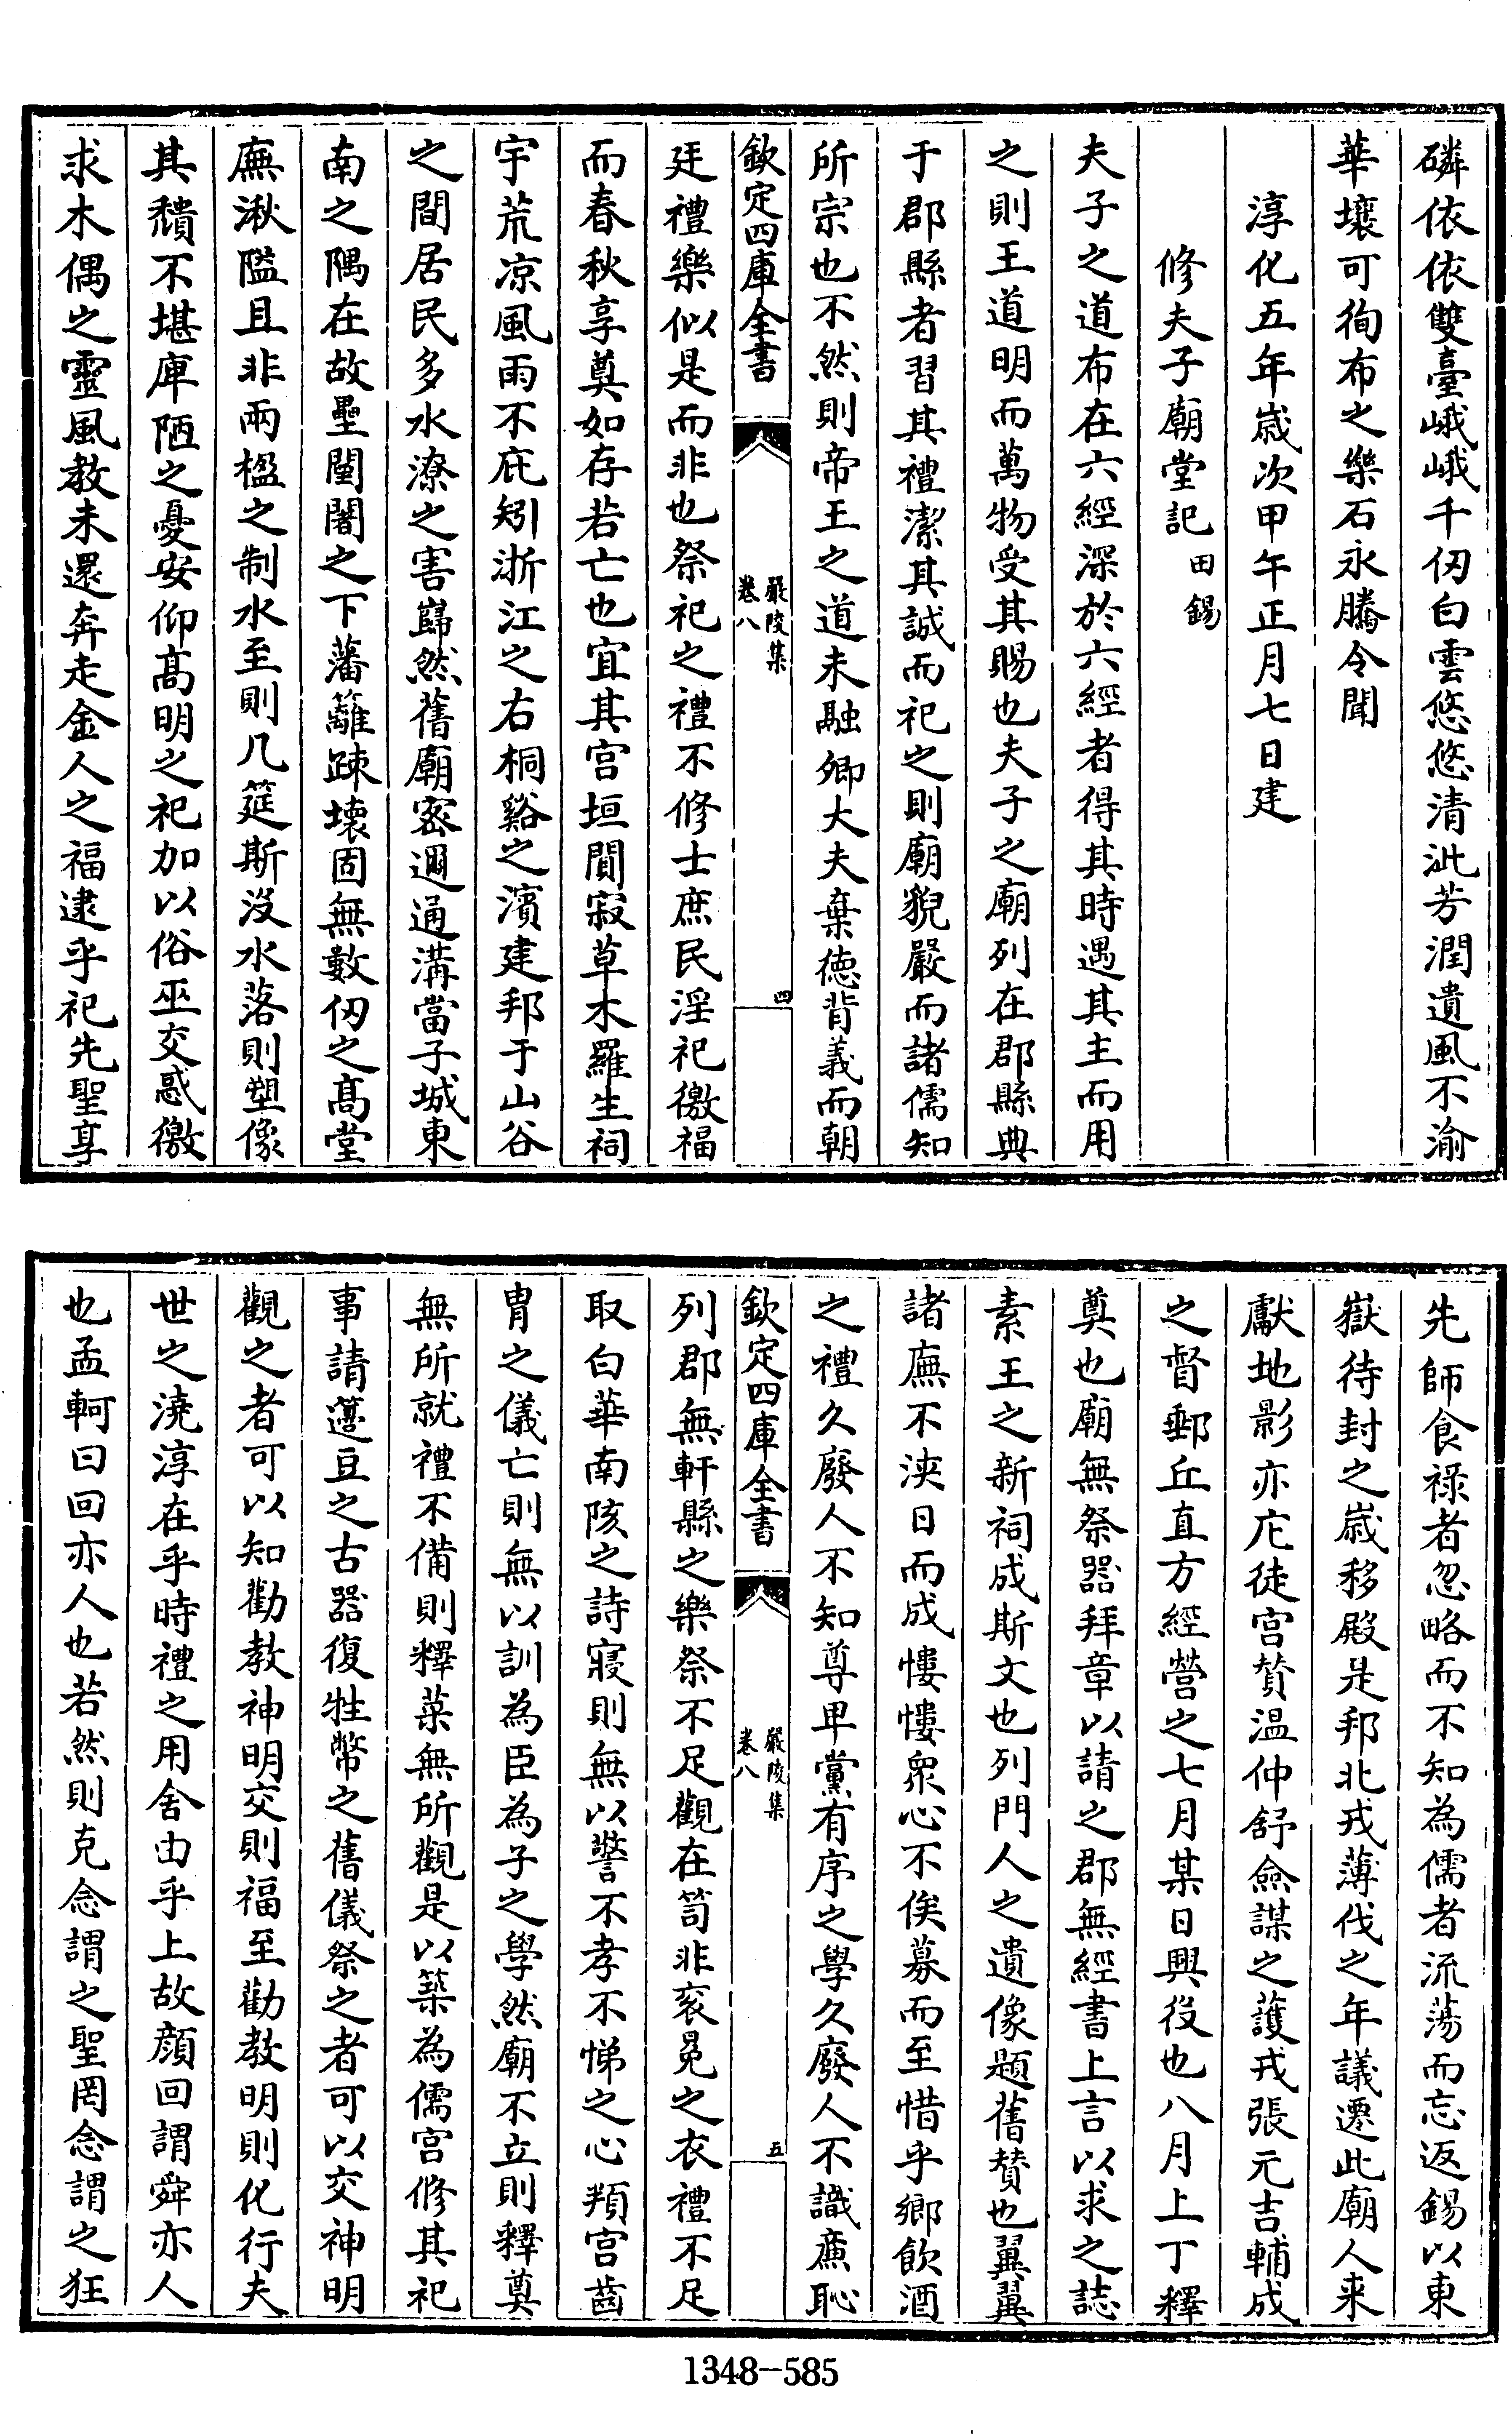 磷依依雙臺峨峨千仞白雲悠悠清泚芳潤遺風不渝
華壤可徇布之樂石永騰令聞
淳化五年歲次甲午正月七日建
修夫子廟堂記 田錫
夫子之道布在六經深於六經者得其時遇其主而用
之則王道明而萬物受其賜也夫子之廟列在郡縣典
于郡縣者習其禮潔其誠而祀之則廟貌嚴而諸儒知
所宗也不然則帝王之道未融卿大夫棄德背義而朝
欽定四庫全書 嚴陵集 卷八 四
廷禮樂似是而非也祭祀之禮不修士庶民淫祀徼福
而春秋享奠如存若亡也宜其宫垣閴寂草木羅生祠
宇荒凉風雨不庇矧浙江之右桐谿之濱建邦于山谷
之間居民多水潦之害巋然舊廟宻邇通溝當子城東
南之隅在故壘闉闍之下藩籬踈壊固無數仞之髙堂
廡湫隘且非兩楹之制水至則几筵斯沒水落則塑像
其穨不堪庳陋之憂安仰髙明之祀加以俗巫交惑徼
求木偶之靈風教未還奔走金人之福逮乎祀先聖享
先師食祿者忽略而不知為儒者流蕩而忘返錫以東
嶽待封之歲移殿是邦北戎薄伐之年議遷此廟人来
獻地影亦庀徒宫賛温仲舒僉謀之護戎張元吉輔成
之督郵丘直方經營之七月某日興役也八月上丁釋
奠也廟無祭器拜章以請之郡無經書上言以求之誌
素王之新祠成斯文也列門人之遺像題舊賛也翼翼
諸廡不浹日而成慺慺衆心不俟募而至惜乎鄉飲酒
之禮久廢人不知尊卑黨有序之學久廢人不識廉恥
欽定四庫全書 嚴陵集 卷八 五
列郡無軒縣之樂祭不足觀在笥非衮冕之衣禮不足
取白華南陔之詩寢則無以警不孝不悌之心頖宫齒
胄之儀亡則無以訓為臣為子之學然廟不立則釋奠
無所就禮不備則釋菜無所觀是以築為儒宫修其祀
事請籩豆之古器復牲幣之舊儀祭之者可以交神明
觀之者可以知勸教神明交則福至勸教明則化行夫
世之澆淳在乎時禮之用舍由乎上故顔回謂舜亦人
也孟軻曰回亦人也若然則克念謂之聖罔念謂之狂
1348-585